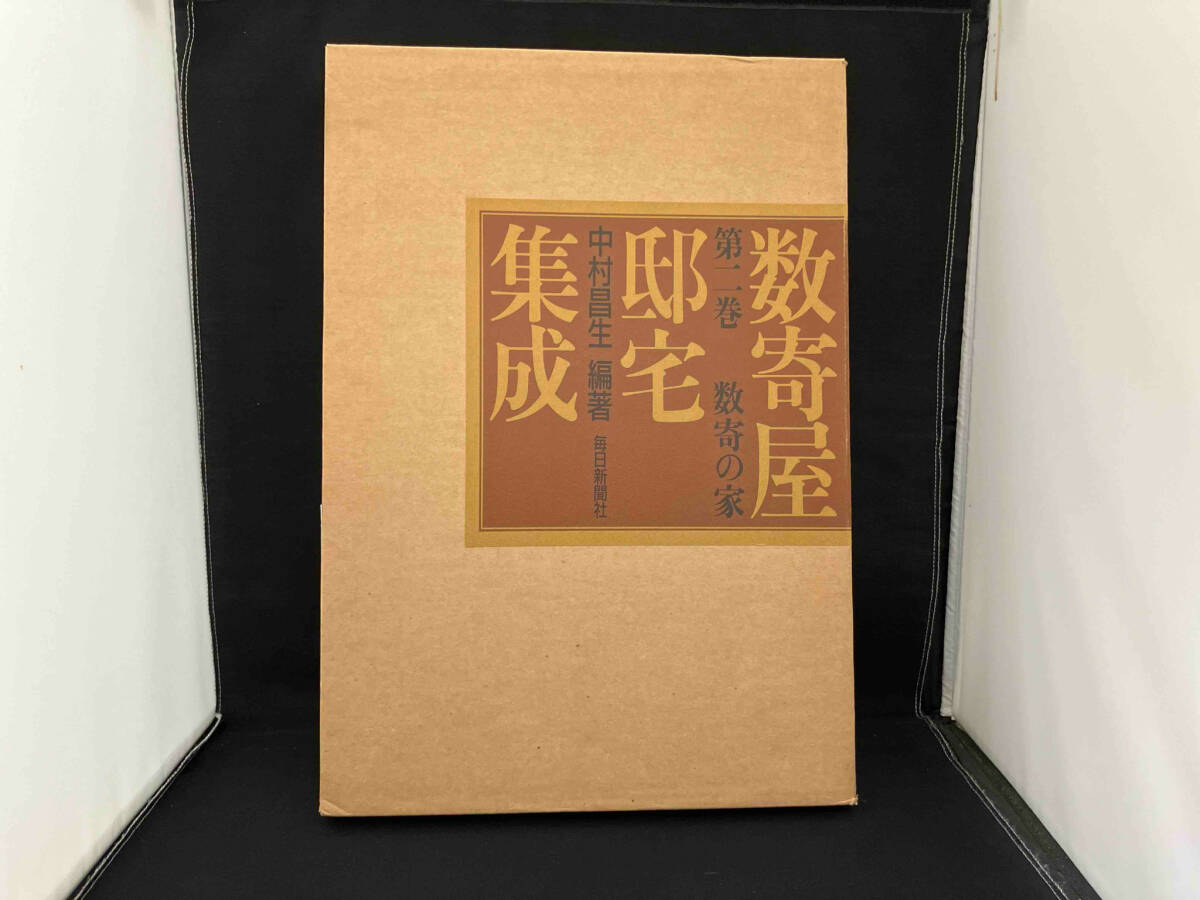 数寄屋
第二巻 数寄の家
邸宅
中村昌生 編著 毎日新聞社
集成